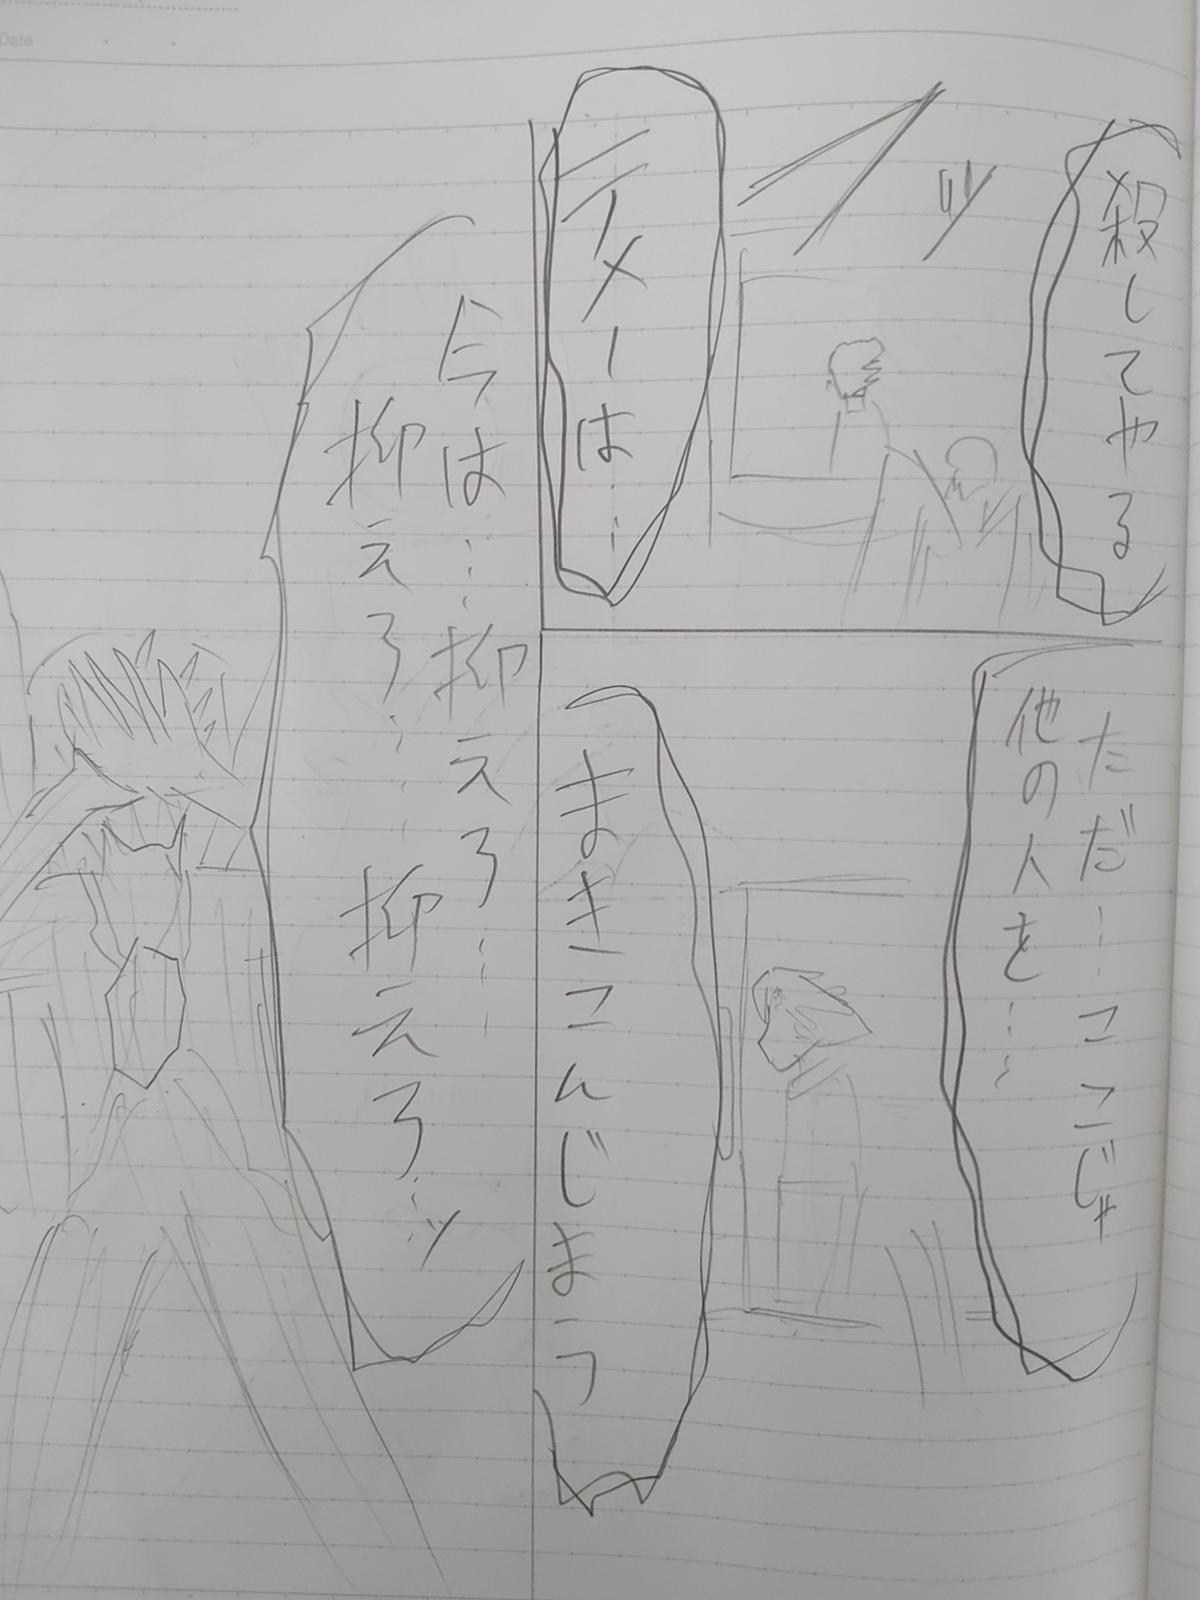 Date
殺してやる
ッ
テメーは…
ただ…ここじゃ
他の人を……
まきこんじまう
今は……抑えろ……
抑えろ……抑えろ…ッ